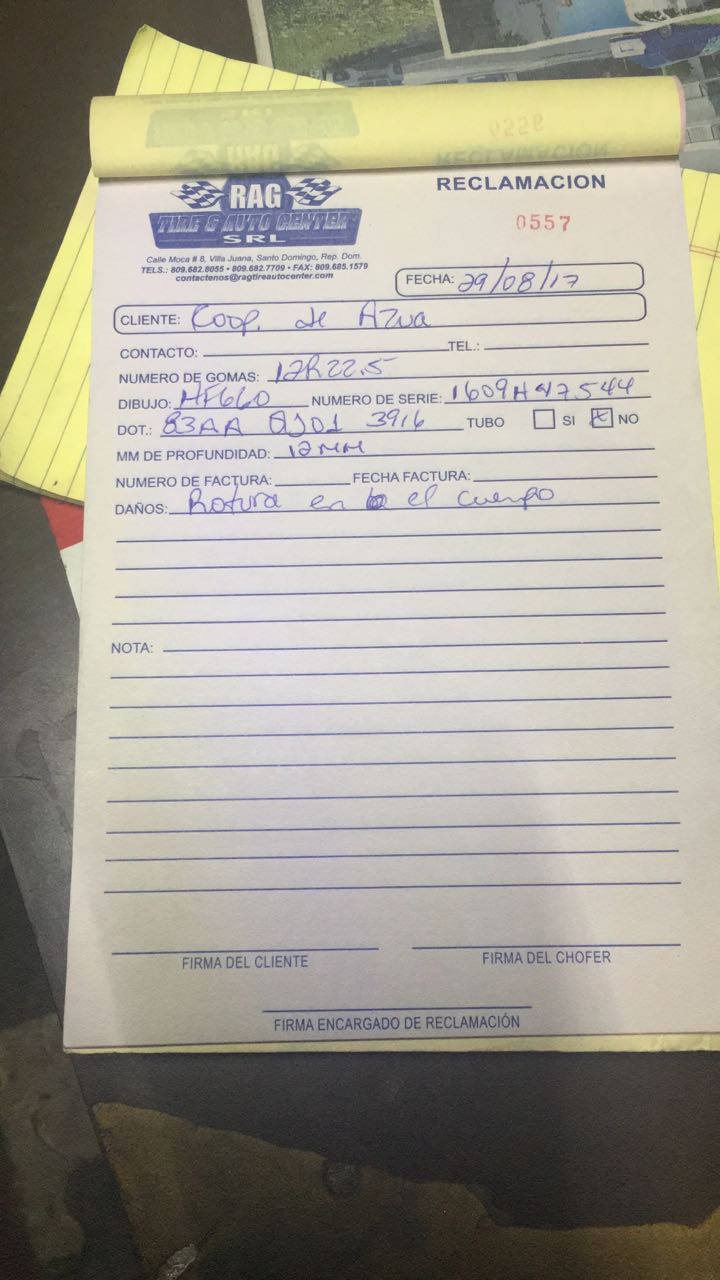 RAG
TIRE & AUTO CENTER
SRL
Calle Moca # 8, Villa Juana, Santo Domingo, Rep. Dom.
TELS.: 809.682.8055 • 809.682.7709 • FAX: 809.685.1579
contactenos@ragtireautocenter.com
RECLAMACION
0557
FECHA: 29/08/17
CLIENTE: Koop. de Azua
CONTACTO: TEL.:
NUMERO DE GOMAS: 12R22.5
DIBUJO: HF660 NUMERO DE SERIE: 1609H47544
DOT.: 83AA 3916 TUBO SI NO
MM DE PROFUNDIDAD: 12MM
NUMERO DE FACTURA: FECHA FACTURA:
DAÑOS: Rotura en el cuerpo
NOTA:
FIRMA DEL CLIENTE FIRMA DEL CHOFER
FIRMA ENCARGADO DE RECLAMACIÓN